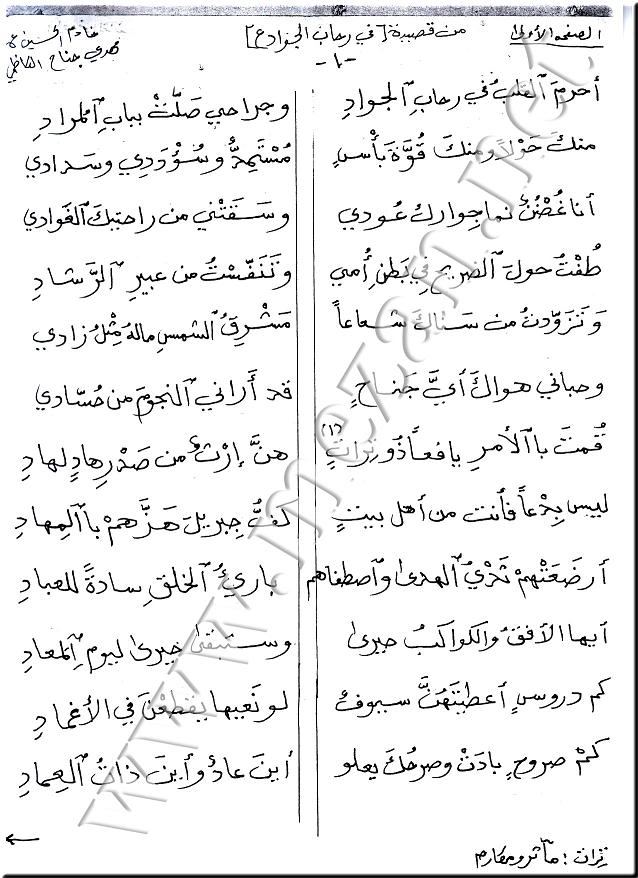 الصفحة الأولى
من قصيدة [في رحاب الجواد ع]
خادم الحسين ع
مهدي جناح الكاظمي
-١-
أحرمَ القلبُ في رحابِ الجوادِ وجراحي صَلَّتْ ببابِ المرادِ
منكَ حَولٌ ومنكَ قُوَّةَ بأسٍ مُسْتَمِدٌّ وسُؤْدَدِي وسَدادي
أنا غُصْنٌ نما جِواركَ عُودي وسَقَتْني من راحتيكَ الغَوادي
طُفْتُ حولَ الضريحِ في بَطنِ أُمي وتَنَفَّسْتُ من عبيرِ الرَّشادِ
وتَزَوَّدتُ من سَناكَ شعاعاً مَشْرِقُ الشمسِ مالهُ مِثْلُ زادي
وحباني هواكَ أيَّ جَناحٍ قد أَراني النجومَ من حُسّادي
قُمتَ بالأمرِ يافعاً ذو تِراتٍ (١) هنَّ إرْثٌ من صَدْرِ هادٍ لهادِ
ليس بِدْعاً فأنت من أهل بيتٍ كفُّ جِبريلَ هَزَّهمْ بالمِهادِ
أرضَعَتْهمْ ثَدْيُ الهدى واصطفاهم بارئُ الخلقِ سادةً للعبادِ
أيها الأفقُ والكواكبُ حيرى وستبقى حيرى ليومِ المعادِ
كم دروسٍ أعطيتَهُنَّ سيوفٌ لو نَعيها يقطعْنَ في الأغمادِ
كمْ صروحٍ بادَتْ وصرحُكَ يعلو أينَ عادٌ وأينَ ذاتُ العِمادِ
تِرات : مآثر ومكارم
www.mezan.net